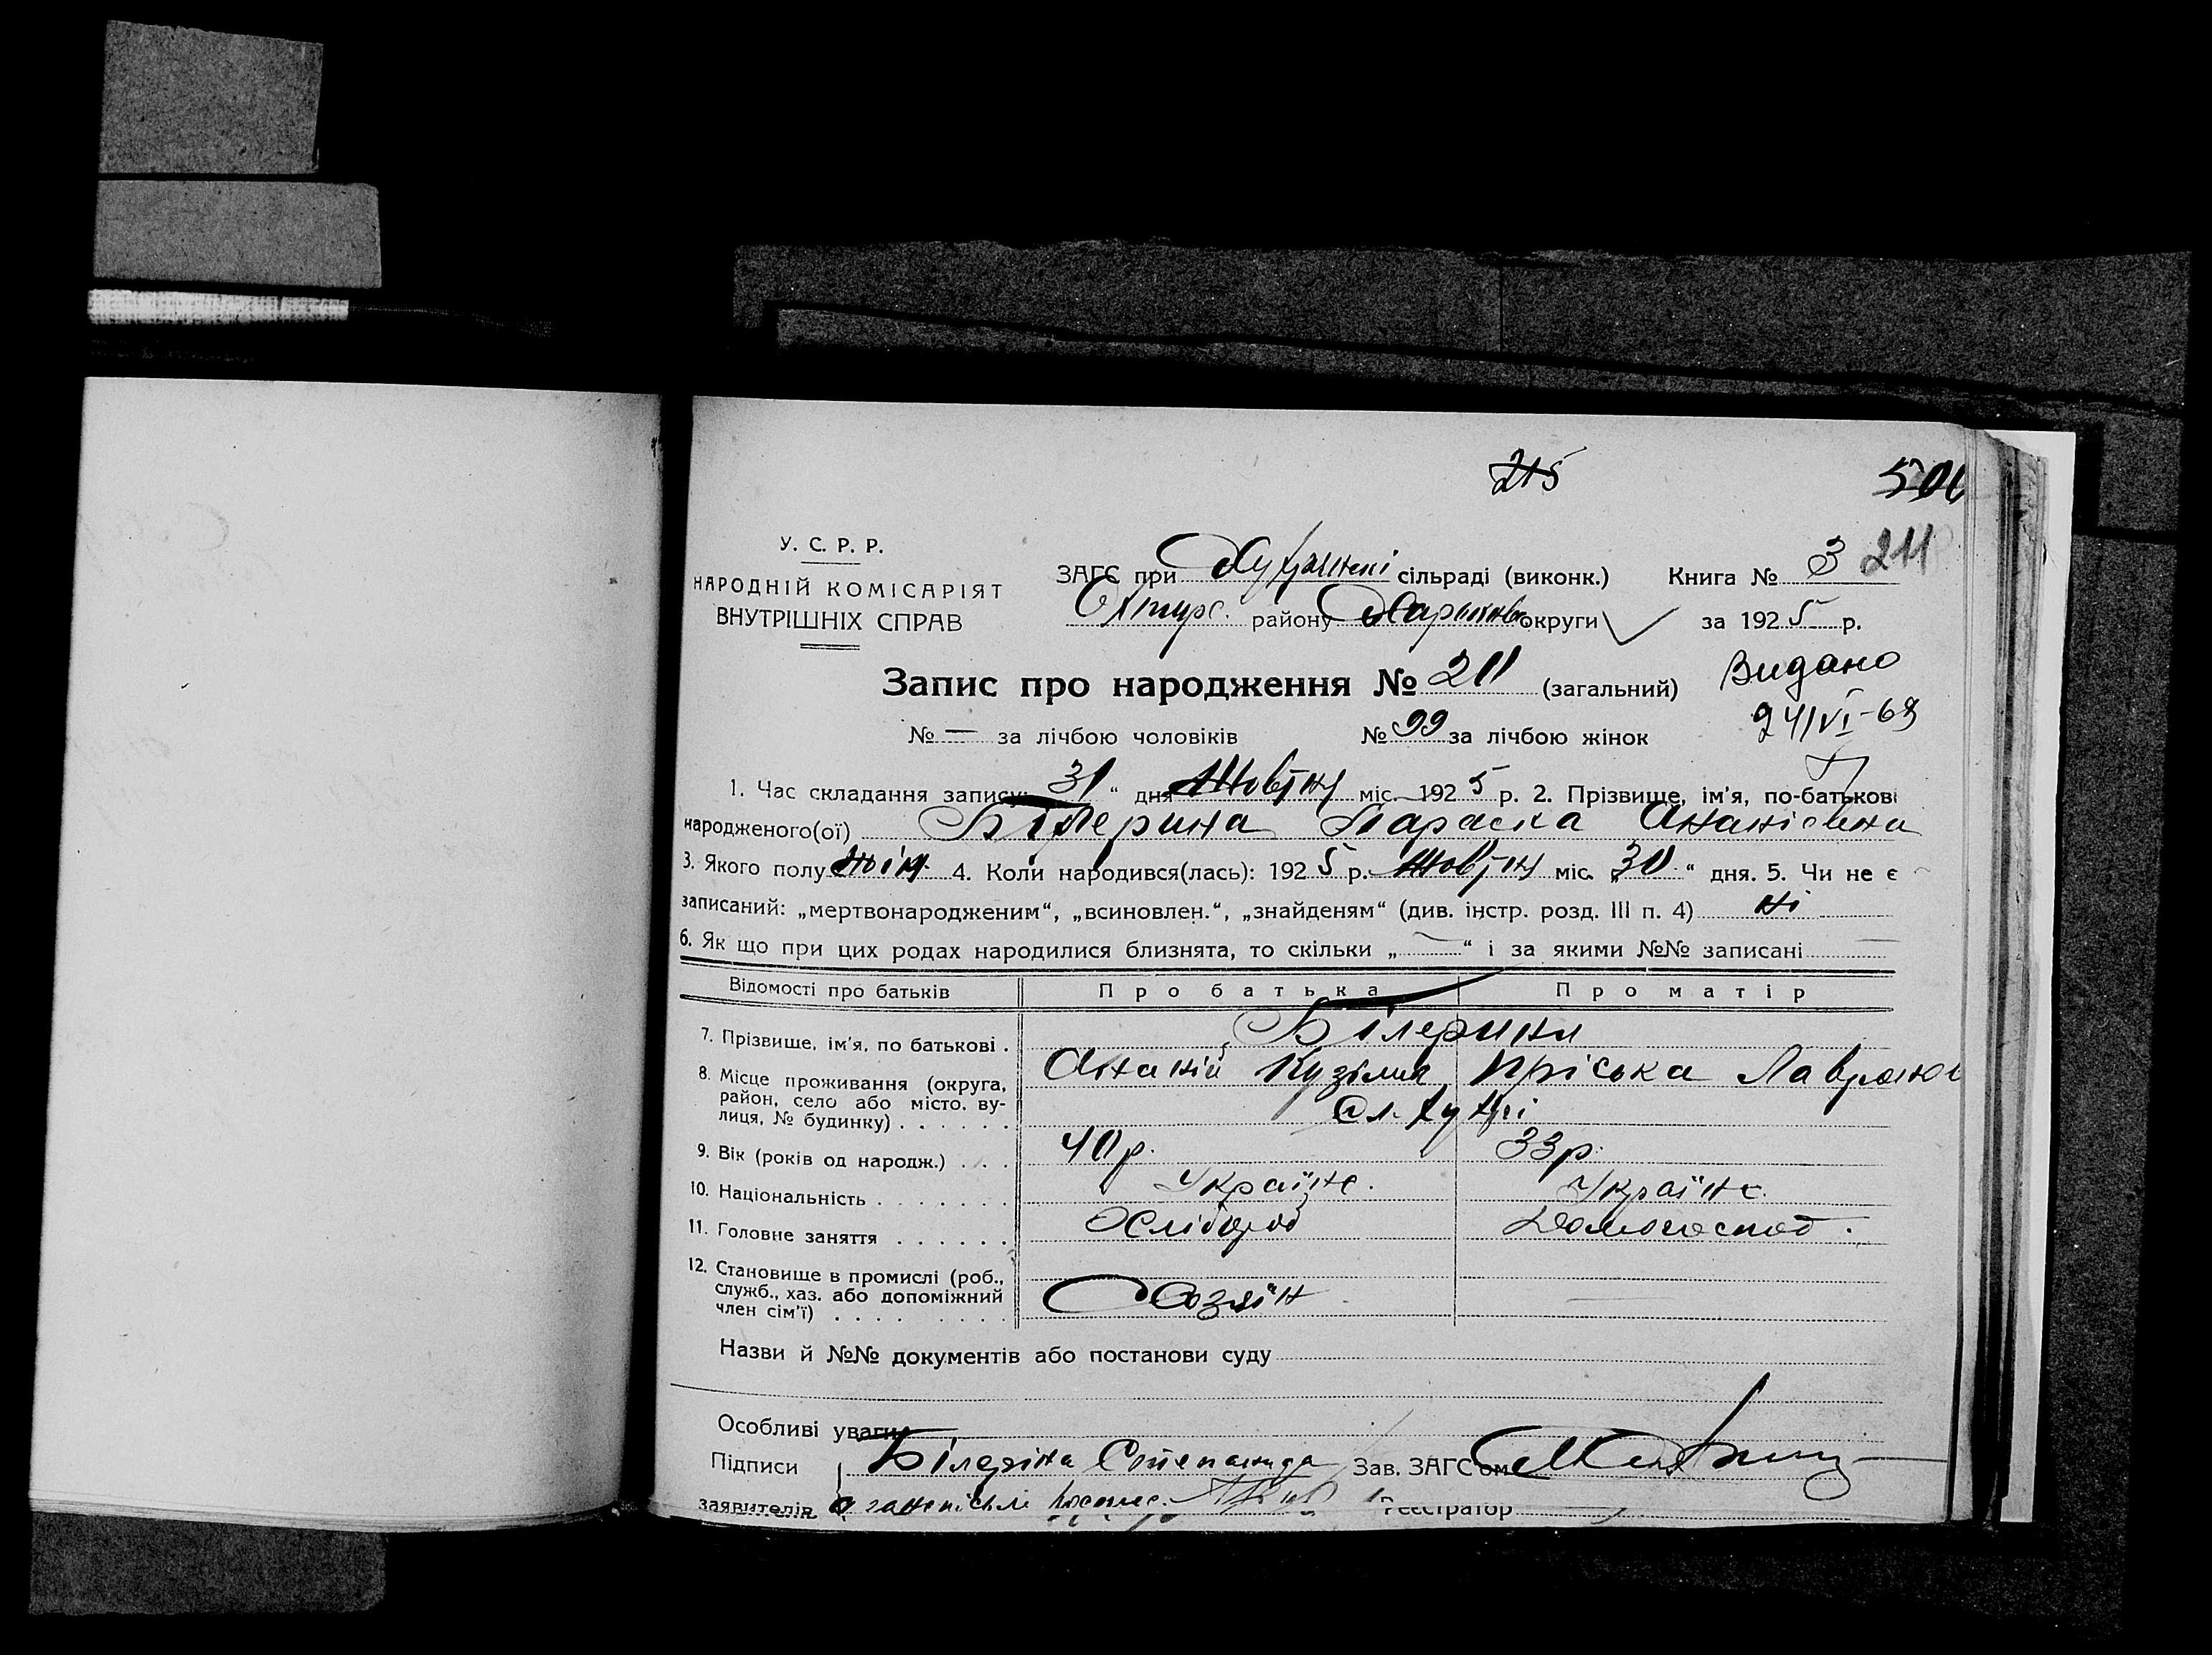 215
У. С. Р. Р.
НАРОДНІЙ КОМІСАРІЯТ
ВНУТРІШНІХ СПРАВ
ЗАГС при сільраді (виконк.) Книга № 3 211
Охтирс. району Харьківс округи за 1925 р.
Запис про народження № 211 (загальний) Видано
№ — за лічбою чоловіків № 99 за лічбою жінок 24/VI-69
1. Час складання запису: 31 “ дня Жовтня міс. 1925 р. 2. Прізвище, ім'я, по-батькові
народженого(ої) Білерина Параска Ананіевна
3. Якого полу жін. 4. Коли народився(лась): 1925 р. Жовтня міс. „30“ дня. 5. Чи не є
записаний: „мертвонародженим“, „всиновлен.“, „знайденям“ (див. інстр. розд. III п. 4) ні
6. Як що при цих родах народилися близнята, то скільки „—“ і за якими №№ записані —
Відомості про батьків Про батька Про матір
7. Прізвише, ім'я, по батькові . Білерини
Ананій Кузьмич Пріська
8. Місце проживання (округа, район, село або місто, вулиця, № будинку) . . . . . . Сл. Хухрі
9. Вік (років од народж.) . . . 40 р. 33 р.
10. Національність . . . . . . . Україне. Україне.
11. Головне заняття . . . . . . Хлібороб Домогоспод.
12. Становище в промислі (роб., служб., хаз. або допоміжний член сім'ї) . . . . . . . . Хозяїн —
Назви й №№ документів або постанови суду
Особливі уваги
Підписи Білеріна Степанида Зав. ЗАГС'ом
заявителів Реєстратор